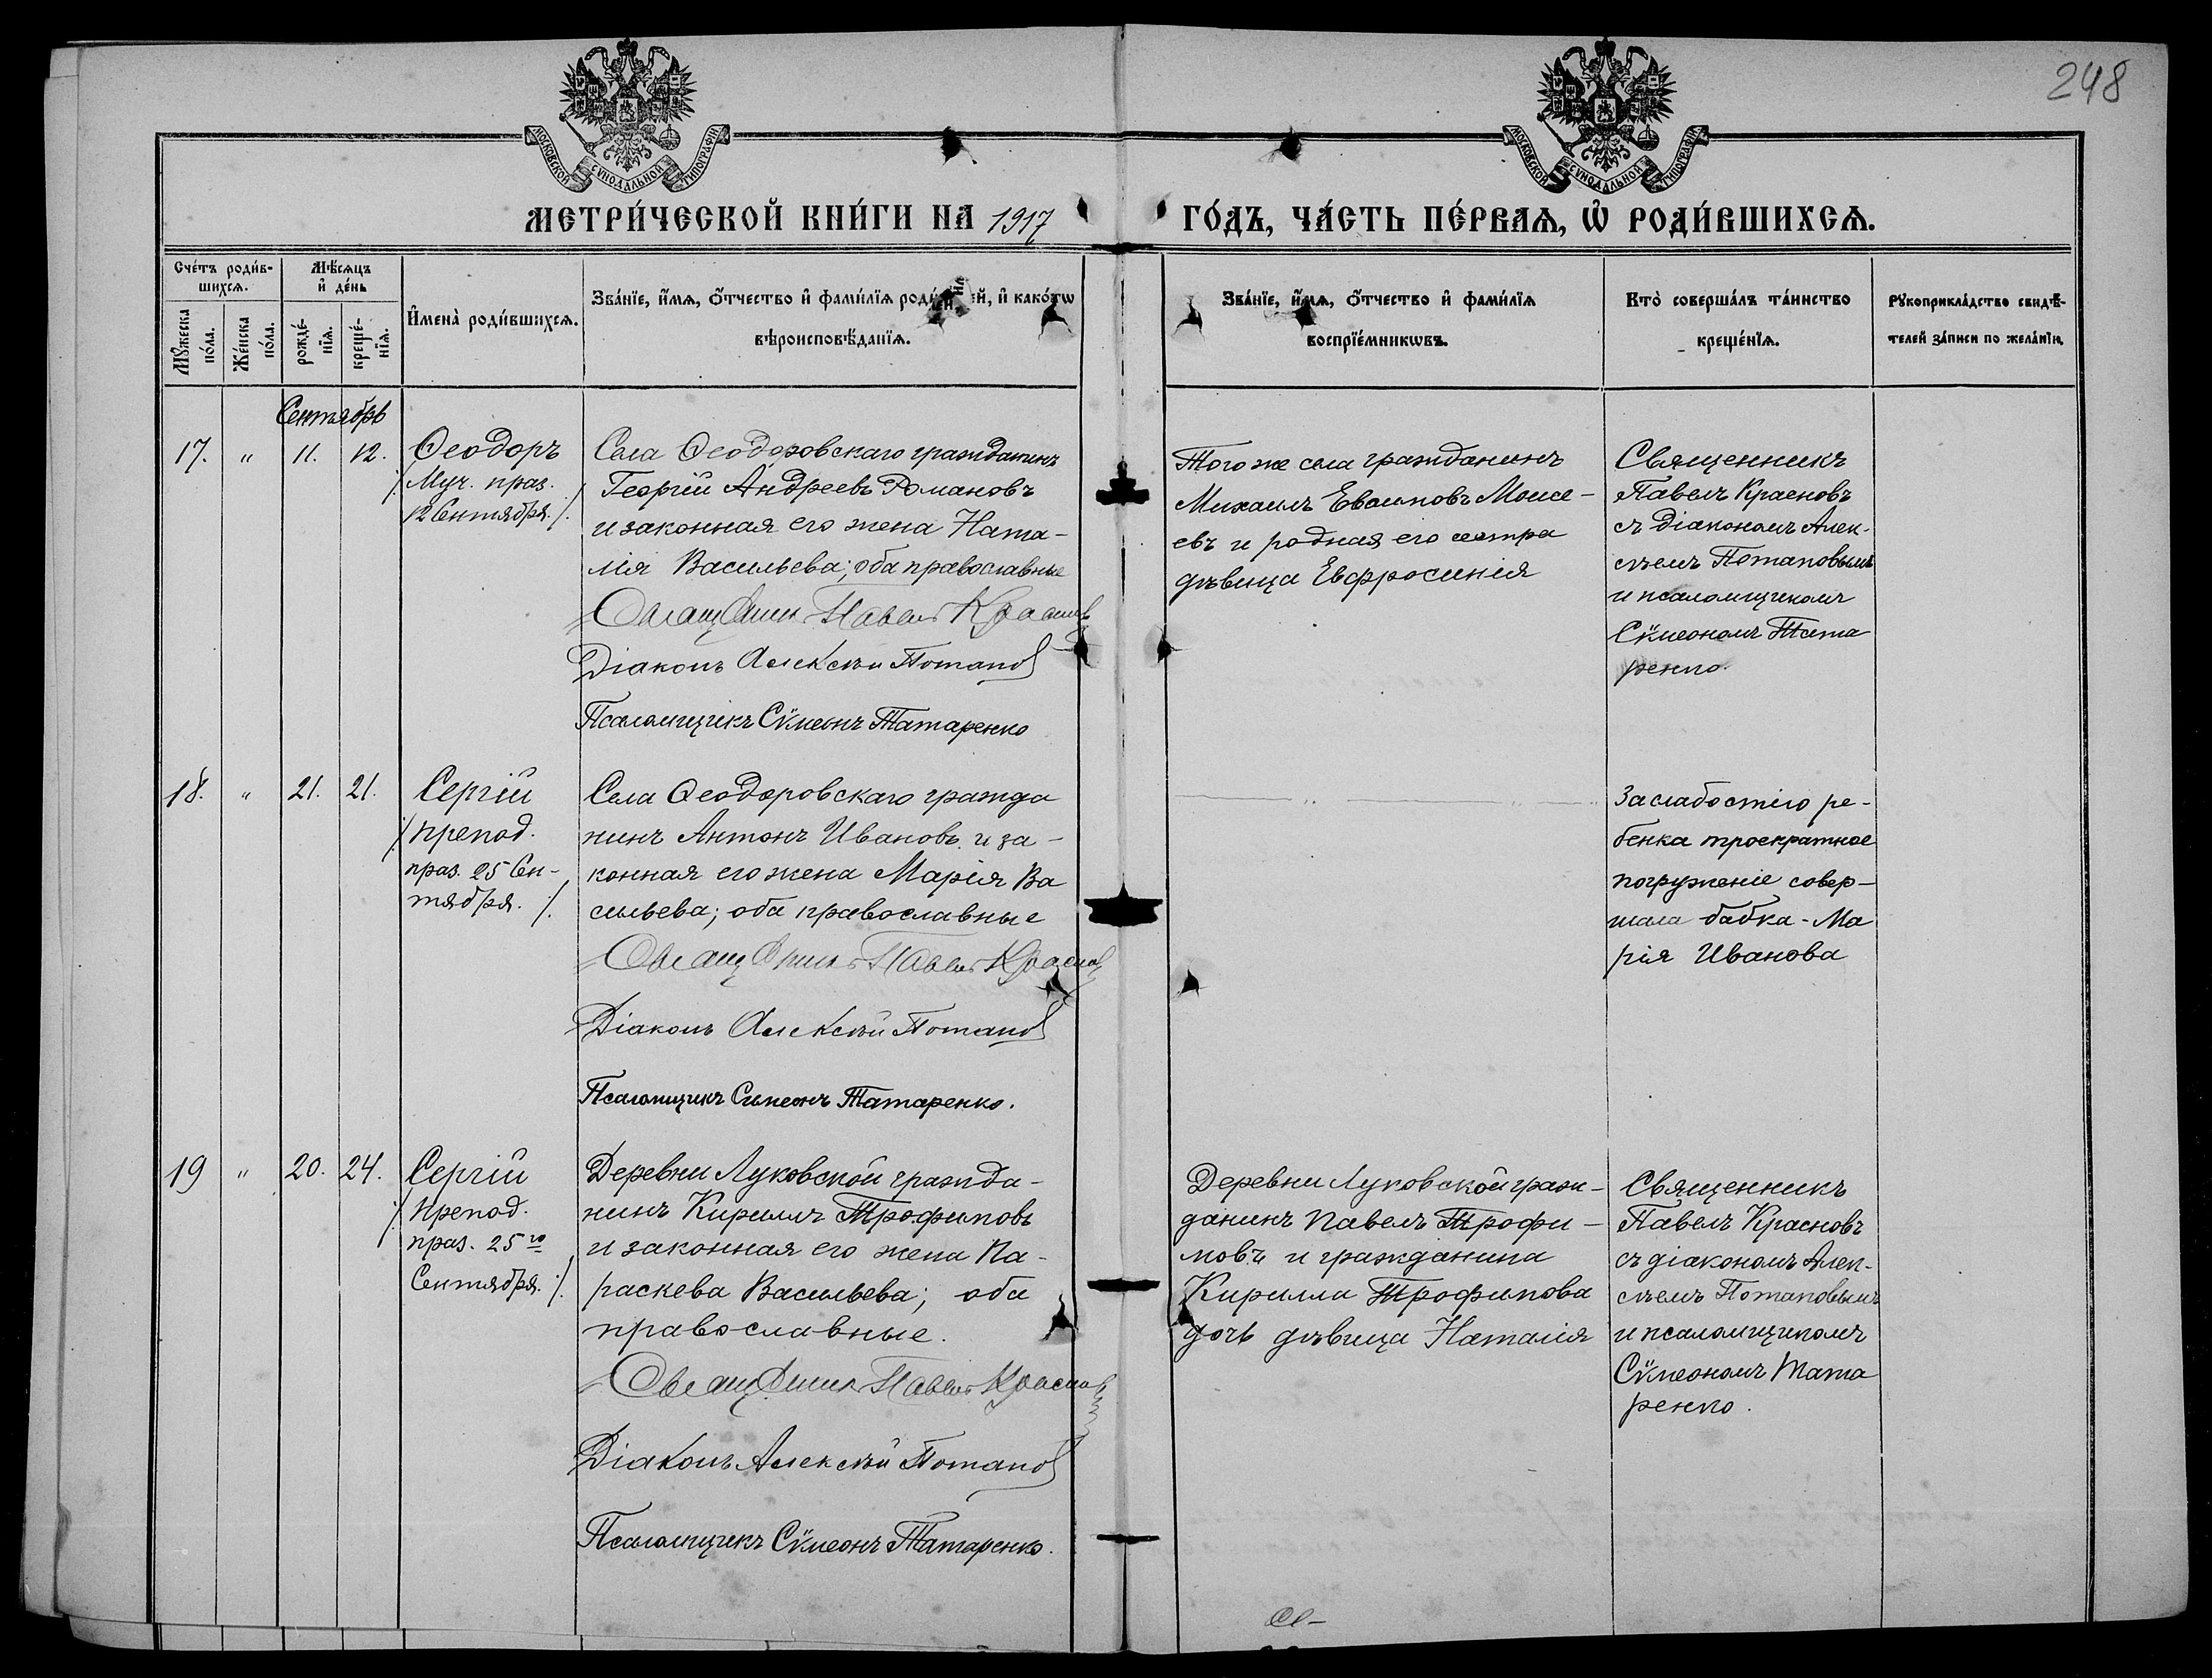 248
МОСКОВСКОЙ СУНОДАЛЬНОЙ ТИПОГРАФІИ
МОСКОВСКОЙ СУНОДАЛЬНОЙ ТИПОГРАФІИ
МЕТРИ́ЧЕСКОЙ КНИ́ГИ НА 1917
ГО́ДЪ, ЧА́СТЬ ПЕ́РВАѦ, Ѡ҆ РОДИ́ВШИХСѦ.
Сче́тъ роди́в-
шихсѧ.
Мѣ́сѧцъ
и҆ де́нь
Мꙋ́жеска
по́ла.
Же́нска
по́ла.
рожде́-
нїѧ.
креще́-
нїѧ.
И҆мена̀ роди́вшихсѧ.
Зва́нїе, и҆́мѧ, ѻ҆́тчество и҆ фами́лїѧ роди́телей, и҆ како́гѡ
вѣроисповѣ́данїѧ.
Зва́нїе, и҆́мѧ, ѻ҆́тчество и҆ фами́лїѧ
воспрїе́мникѡвъ.
Кто̀ соверша́лъ та́инство
креще́нїѧ.
Рꙋкоприкла́дство свидѣ́-
телей за́писи по жела́нїю.
Сентябрь
17. " 11. 12.
Ѳеодоръ
/Муч. праз.
12 Сентября./.
Села Ѳеодоровскаго гражданинъ
Георгій Андреевъ Романовъ
и законная его жена Ната-
лія Васильева; оба православные
Священникъ Павелъ Красновъ
Діаконъ Алексѣй Потаповъ
Псаломщикъ Сѵмеонъ Татаренко
Того же села гражданинъ
Михаилъ Моисе-
евъ и родная его сестра
дѣвица Евфросинія
Священникъ
Павелъ Красновъ
съ діакономъ Алек-
сѣемъ Потаповымъ
и псаломщикомъ
Сѵмеономъ Тата
ренко.
18. " 21. 21.
Сергій
/препод.
праз. 25 Сен-
тября. /.
Села Ѳеодоровскаго гражда
нинъ Антонъ Ивановъ и за-
конная его жена Марія Ва
сильева; оба православные
Священникъ Павелъ Красновъ
Діаконъ Алексѣй Потаповъ
Псаломщикъ Симеонъ Татаренко.
За слабостію ре-
бенка троекратное
погруженіе совер-
шала бабка - Ма
рія Иванова
19 " 20. 24.
Сергій
/препод.
праз. 25го
Сентября. /.
Деревни Луковской гражда-
нинъ Кириллъ Трофимовъ
и законная его жена Па-
раскева Васильева; оба
православные.
Священникъ Павелъ Красновъ
Діаконъ Алексѣй Потаповъ
Псаломщикъ Сѵмеонъ Татаренко.
Деревни Луковской граж-
данинъ Павелъ Трофи-
мовъ и гражданина
Кирилла Трофимова
дочь дѣвица Наталія
Священникъ
Павелъ Красновъ
съ діакономъ Алек-
сѣемъ Потаповымъ
и псаломщикомъ
Сѵмеономъ Тата
ренко.